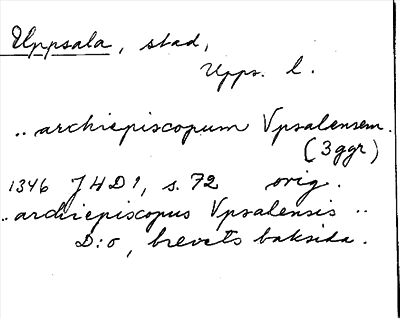 Uppsala, stad,
Upps. l.
.. archiepiscopum Vpsalensem.
(3 ggr)
1346 JHD 1, s. 72 orig.
.. archiepiscopus Vpsalensis ..
D:o, brevets baksida.